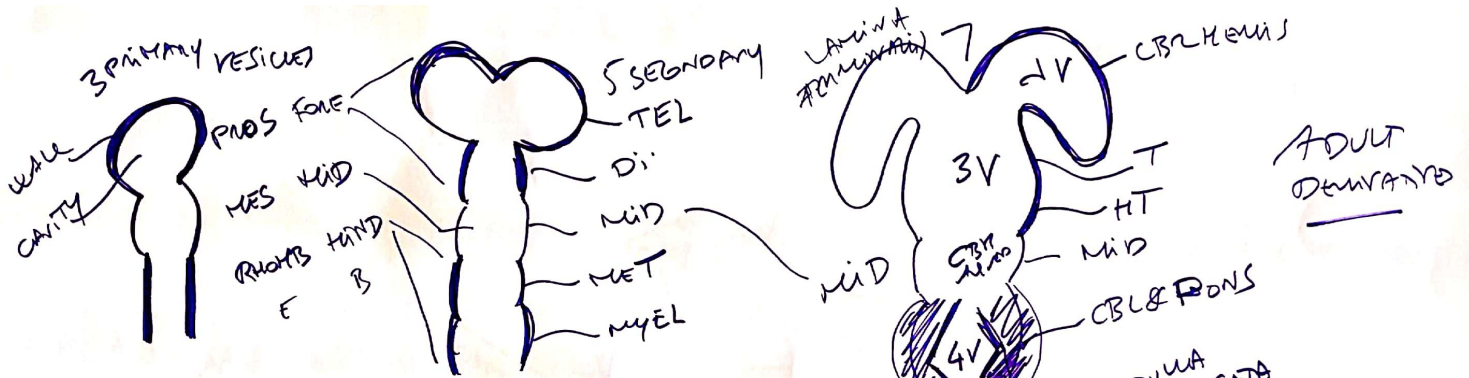 3 PRIMARY VESICLES
WALL
CAVITY
PROS
MES
RHOMB
E
FORE
MID
HIND
B
5 SECONDARY
TEL
Di
MiD
MET
MYEL
LAMINA
TERMINALIS
LV
CBR HEMIS
3V
T
HT
MiD
MiD
CBL & PONS
4V
ADULT
DERIVATIVE